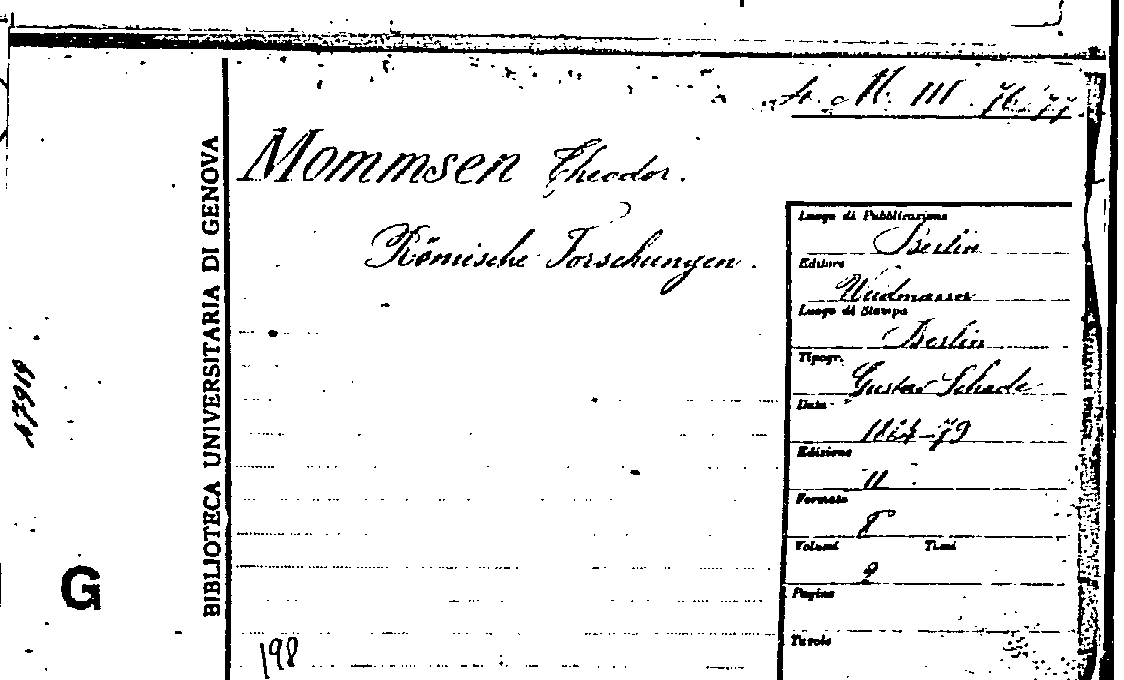 M. III. 76/77
Mommsen Theodor.
Römische Forschungen.
BIBLIOTECA UNIVERSITARIA DI GENOVA
G
198
Luogo di Pubblicazione
Berlin
Editore
Weidmann
Luogo di Stampa
Berlin
Tipogr.
Gustav Schade
Data
1864-79
Edizione
II
Formato
8°
Volumi Tomi
2
Pagine
Tavole